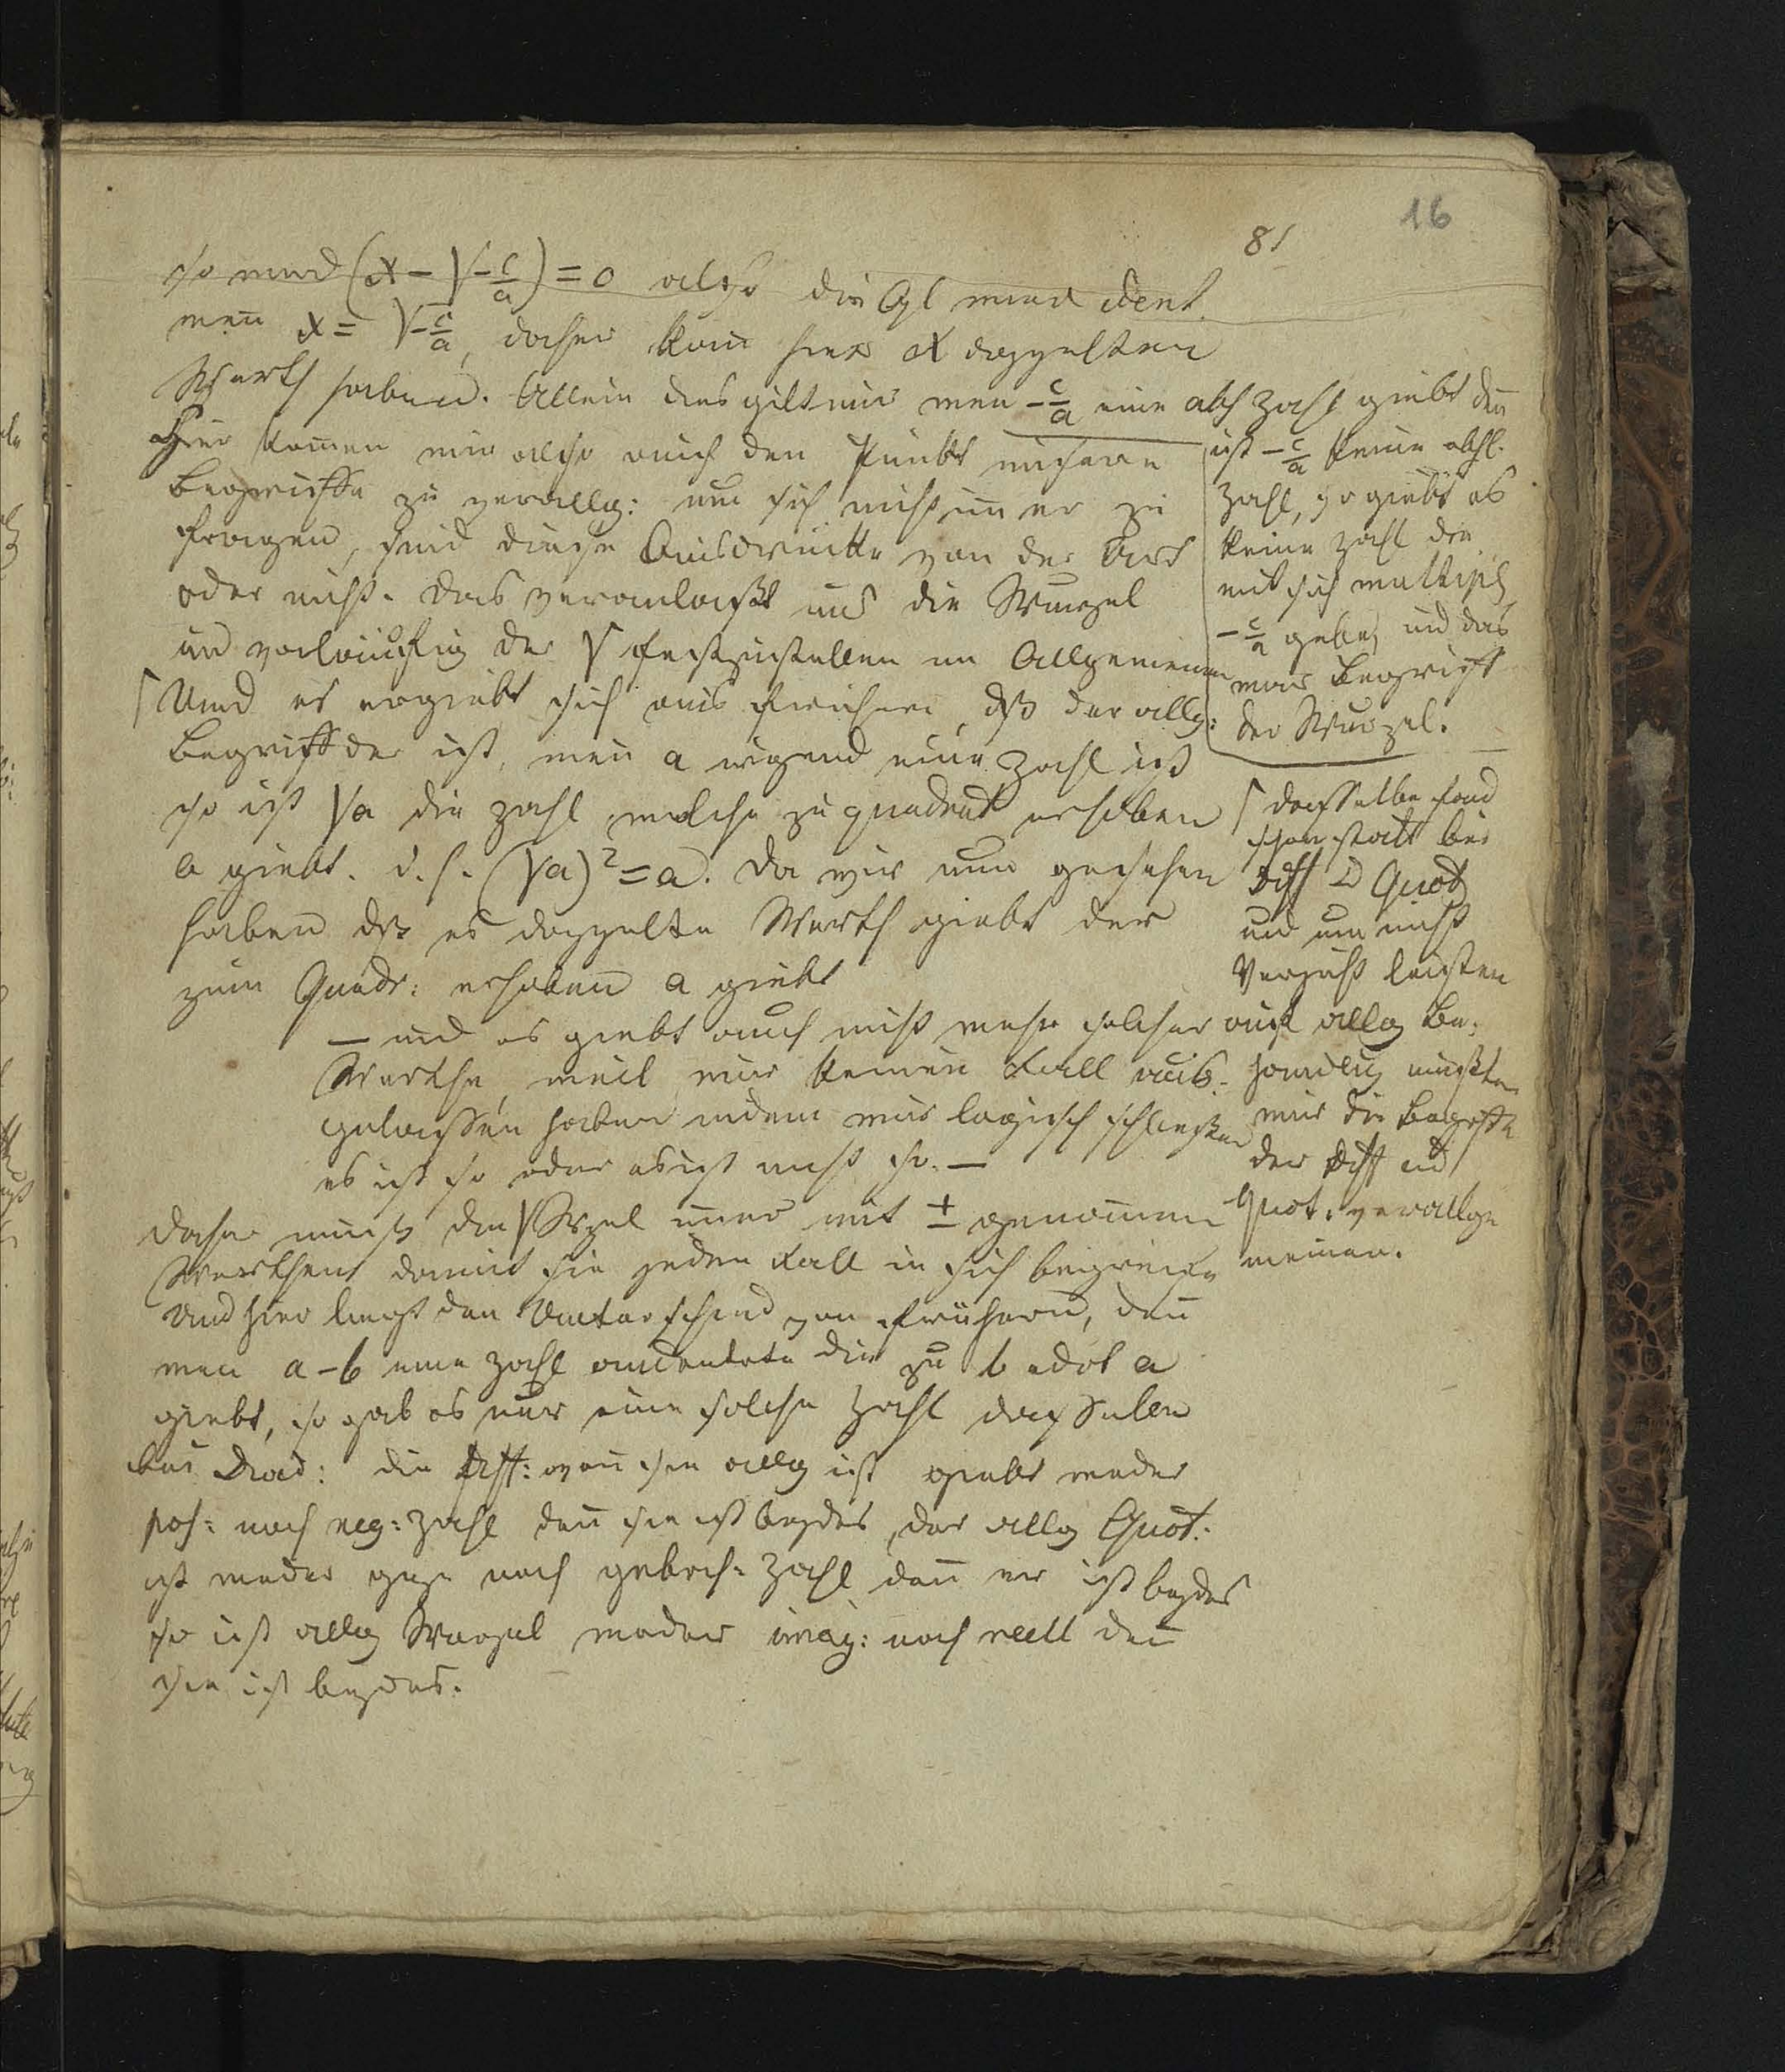 16
81
so wird (x − √−c/a) = 0 also die Gl wird ident.
wen̄ x = √−c/a, daher kan̄ hier x doppelten
Werth haben. Allein dies gilt nur wen̄ −c/a eine abs Zahl giebt den̄
Hier kom̄en wir also auf den Punkt unsere
Begriffe zu verallg: um sich nicht im̄er zu
fragen, sind diese Ausdrücke von der Art
oder nicht. Das veranlaßt uns die Wurzel
und vorläufig der √ festzustellen im Allgemeinen
Und es ergiebt sich aus früheren, dß der allg:
Begriff der ist, wen̄ a irgend eine Zahl ist
so ist √a die Zahl welche zu quadrat erhoben
a giebt. d. h. (√a)² = a. Da wir nun gesehen
haben dß es doppelte Werth giebt der
zum Quadr: erhoben a giebt
— und es giebt auch nicht mehr solcher
Werthe, weil wir keinen Fall aus-
gelassen haben indem wir logisch schließen
es ist so oder es ist nicht so. —
daher muß die √ Wzel im̄er mit ± genom̄en
werthen damit sie jeden Fall in sich begreife
Und hier liegt der Unterschied von frühern, den̄
wen̄ a − b eine Zahl andeutete die zu b adot a
giebt, so gab es nur eine solche Zahl dasselbe
bei Divid: die Diff: wen̄ sie allg ist giebt weder
pos: noch neg: Zahl den̄ sie ist beydes, der allg Quot:
ist weder gze noch gebroch: Zahl den̄ er ist beydes
so ist allg Wurzel weder imag: noch reell den̄
sie ist beydes.
ist −c/a keine absl.
Zahl, so giebt es
keine Zahl die
mit sich multipl
−c/a gebe, und das
war Begriff
der Wurzel.
dasselbe fand
schon statt bei
Diff u Quot
und um nicht
Verzicht leisten
auf allg Be-
handlug mußten
wir die Begriffe
der Diff ud
Quot. verallge
meinen.